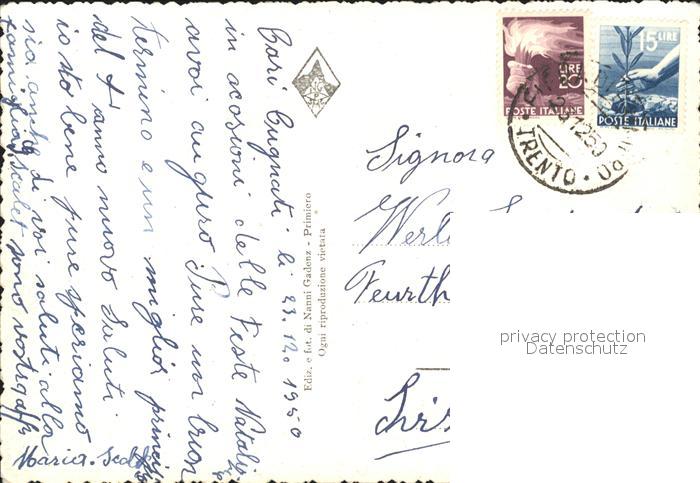 Cari Cugnati li 23.12.1950
in acosioni delle Feste Natalizie
avoi auguro Pure un buon
termino e un miglior principio
del + anno nuovo Saluti
io sto bene pure speriamo
sia anche di voi saluti alla
famiglia sono vostra aff
Maria
Ediz. e fot. di Nanni Gadenz - Primiero
Ogni riproduzione vietata
LIRE
20
POSTE ITALIANE
15 LIRE
POSTE ITALIANE
TRENTO
Signora
Feurth
privacy protection
Datenschutz